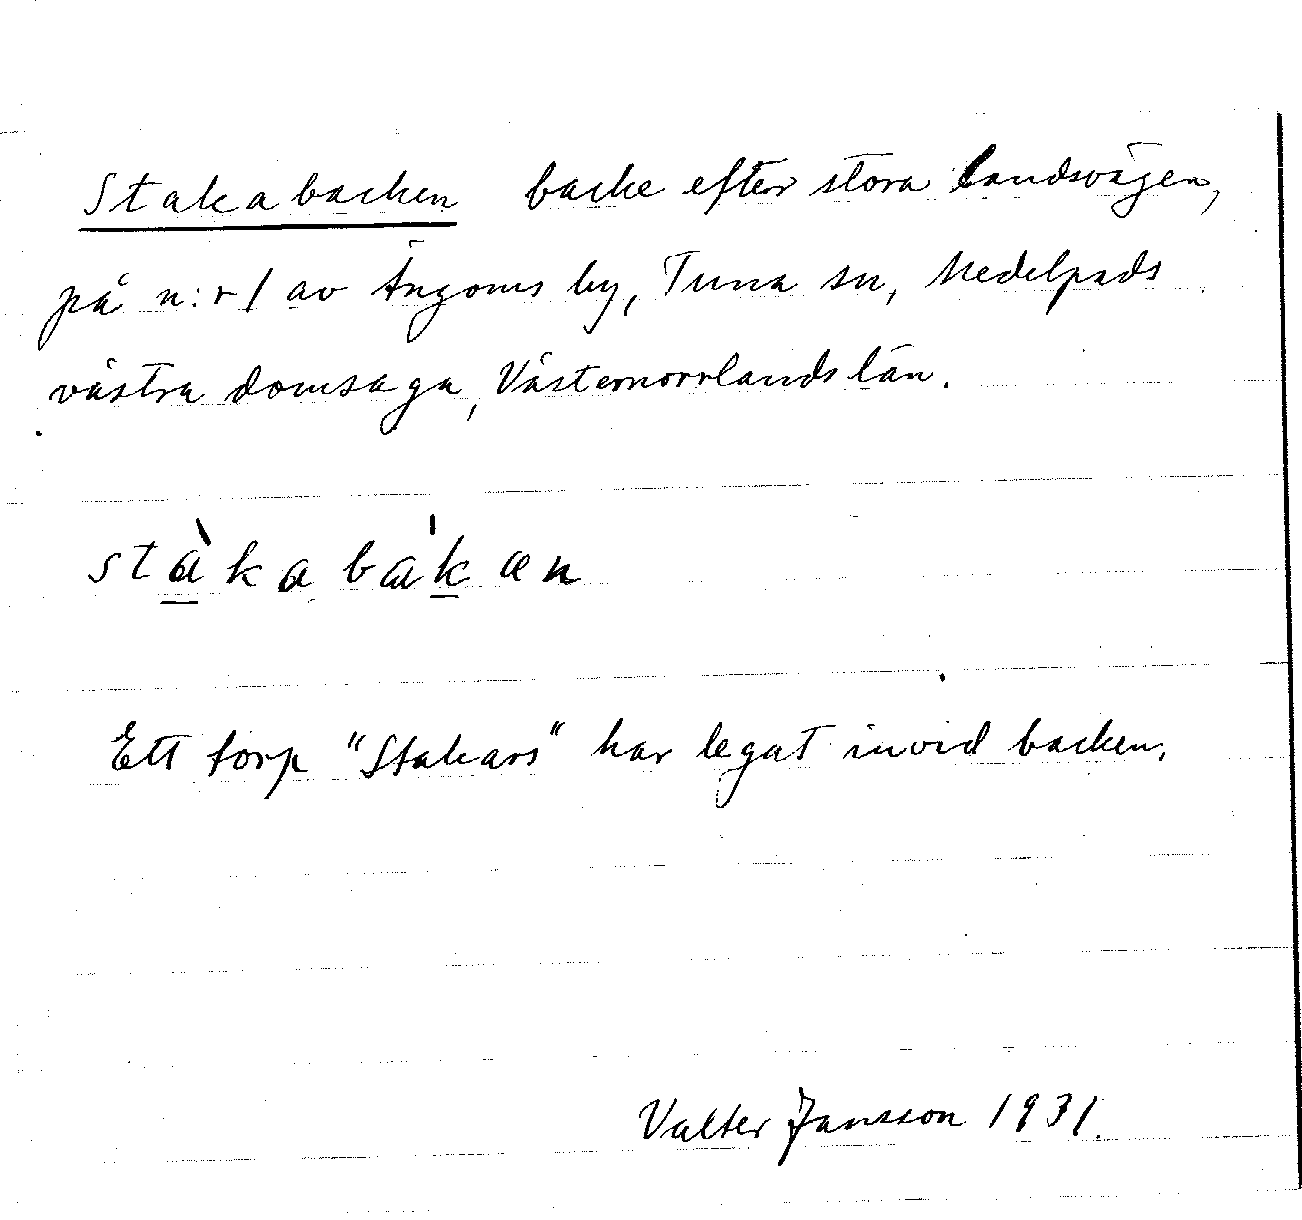 Stakabacken backe efter stora landsvägen,
på n:r 1 av Ängoms by, Tuna sn, Medelpads
västra domsaga, Västernorrlands län.
stàkabák æn
Ett torp "Stakars" har legat invid backen.
Valter Jansson 1931.